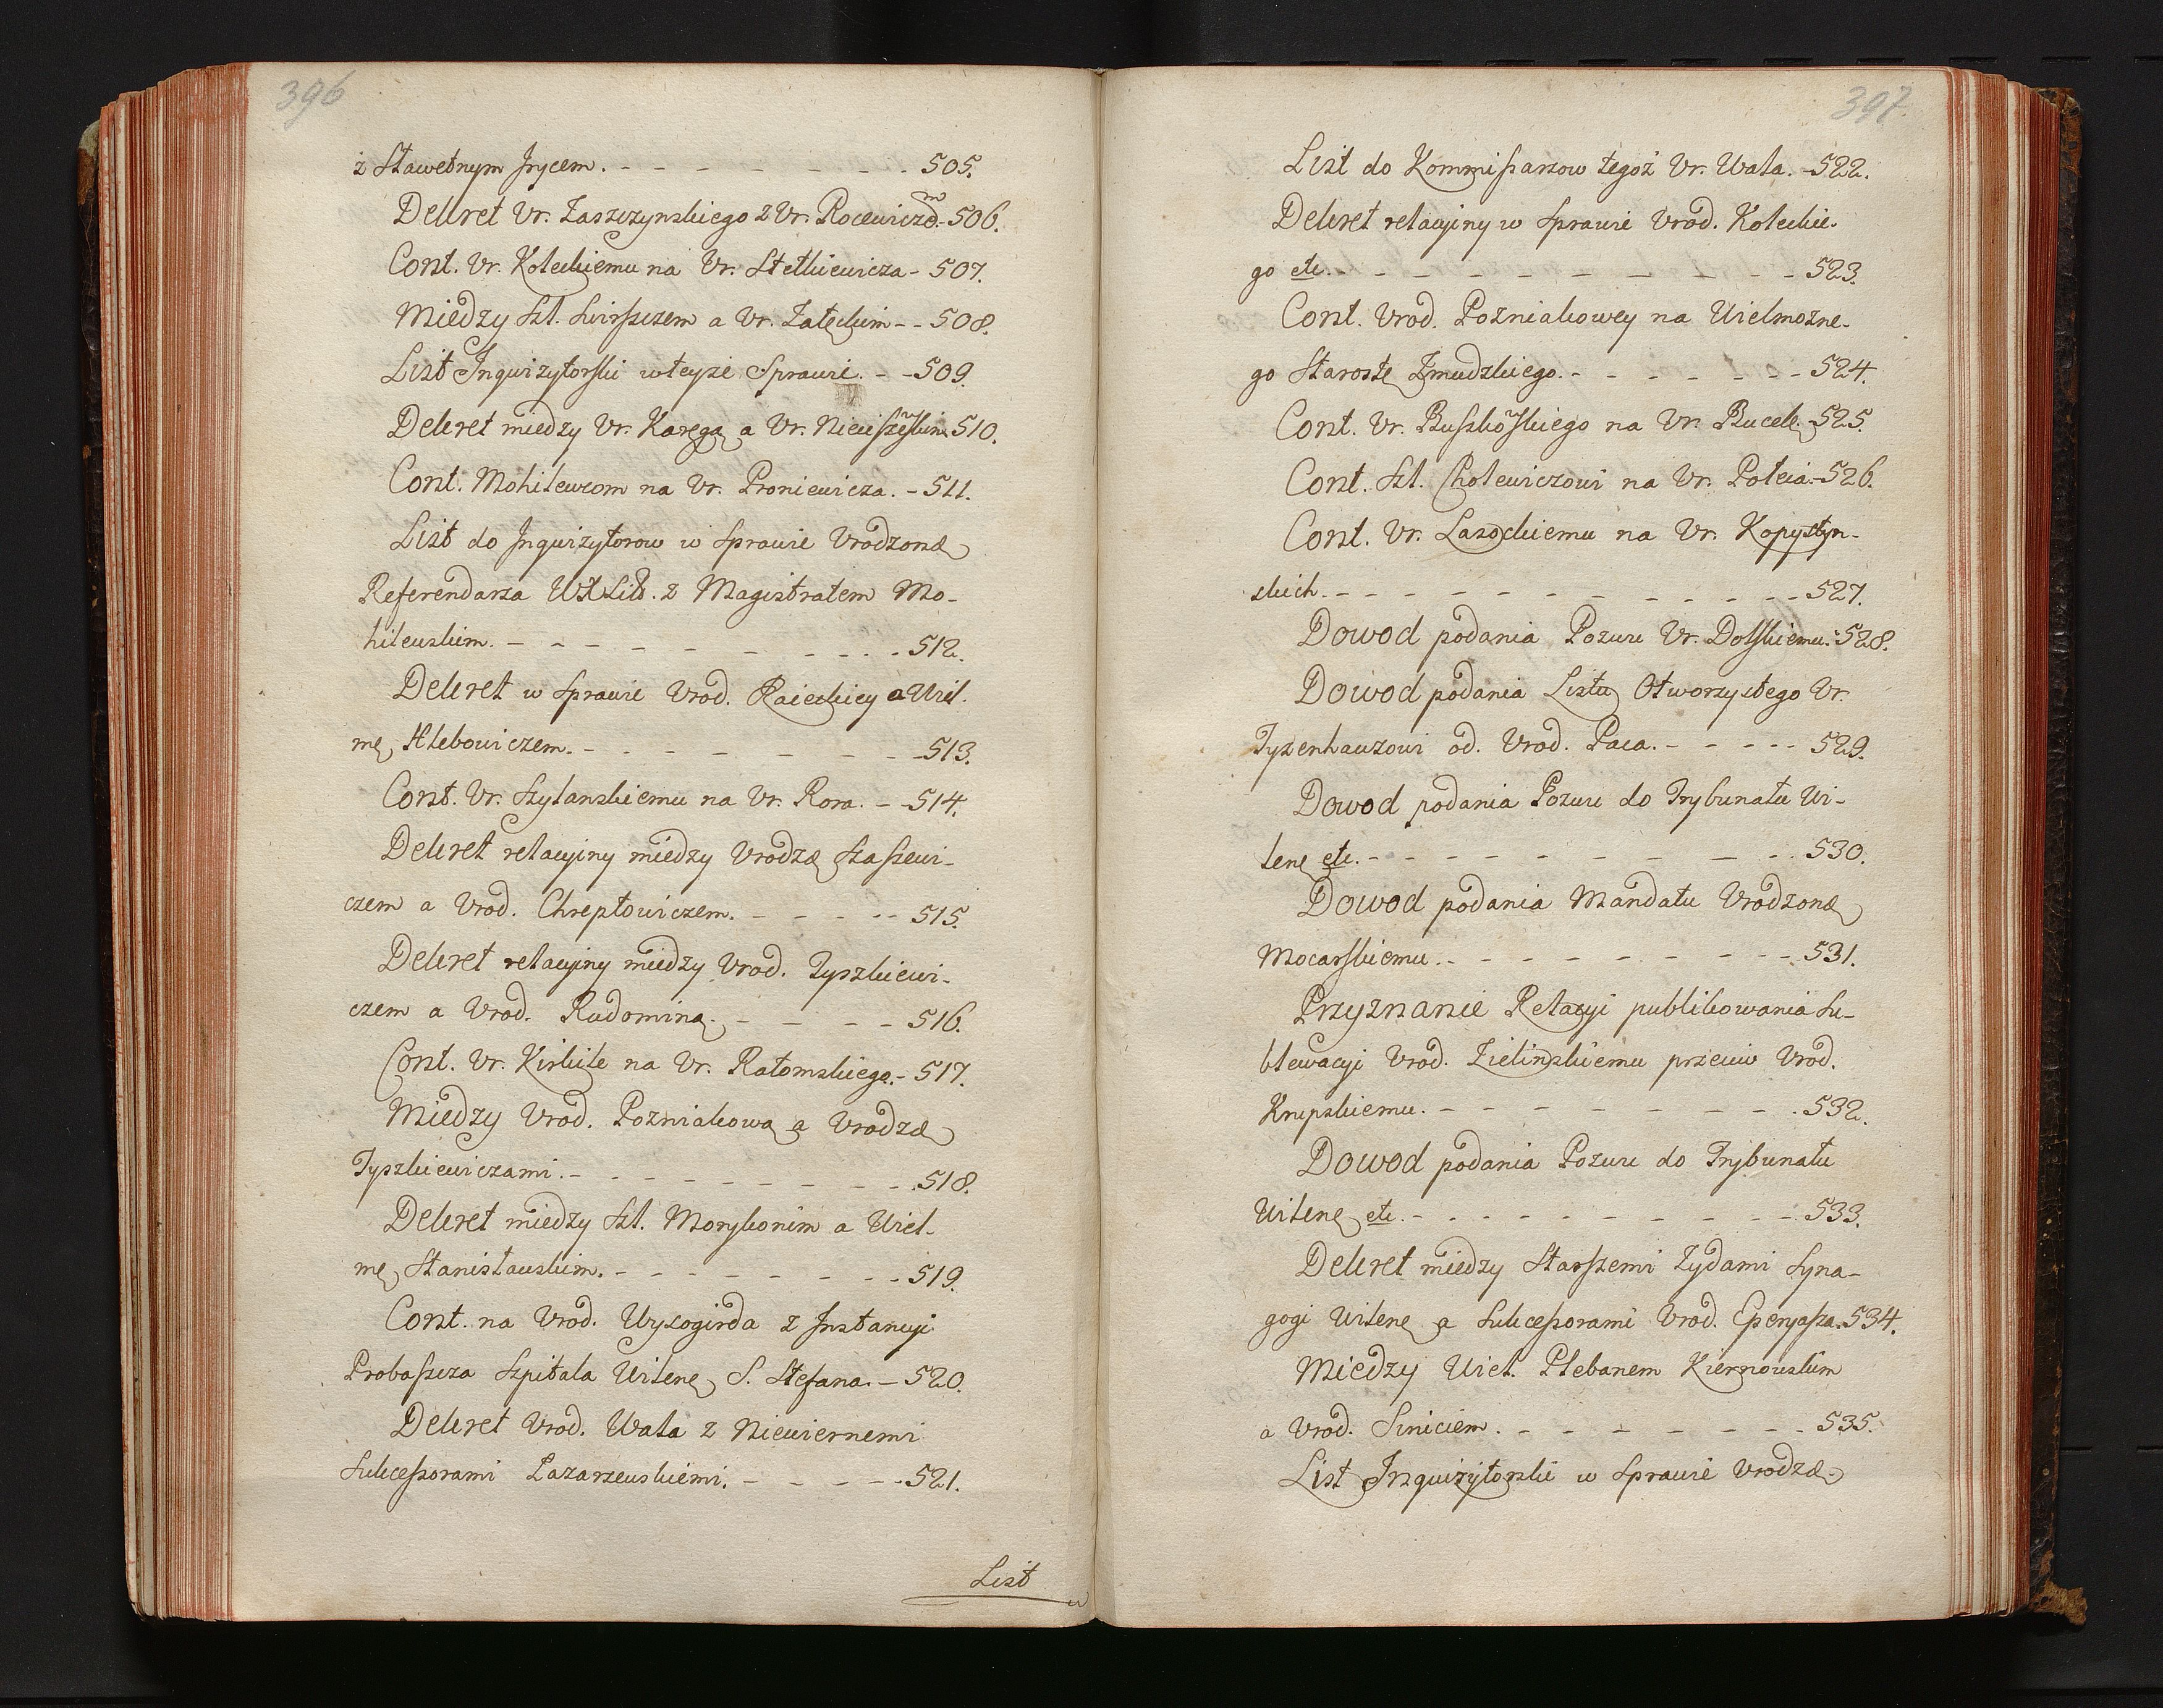 396
z Sławetnym Jrycem. - - - - - - - - 505.
Dekret Ur. Zaszczynskiego z Ur. Rocewicze͠m - 506.
Cont. Ur. Koleckiemu na Ur. Stetkiewicza - 507.
Miedzy Szl. Swirszczem a Ur. Zaleckim - - 508.
List Inquizytorski w teyze Sprawie. - - 509.
Dekret miedzy Ur. Karęgą a Ur. Niciszewskim 510.
Cont. Mohilewcom na Ur. Proniewicza. - 511.
List do Inquizytorow w Sprawie Urodzone
Referendarza WXLit. z Magistratem Mo-
hilewskim. - - - - - - - - - 512.
Dekret w Sprawie Urod. Raieckiey a Wiel.
mę Hlebowiczem. - - - - - - - - 513.
Cont. Ur. Szylanskiemu na Ur. Rora. - - 514.
Dekret relacyiny miedzy Urodze Szaszewi-
czem a Urod. Chreptowiczem. - - - - - 515.
Dekret relacyiny miedzy Urod. Tyszkiewi-
czem a Urod. Rudominą. - - - - - 516.
Cont. Ur. Kirkile na Ur. Ratomskiego. - 517.
Miedzy Urod. Pozniakową a Urodze
Tyszkiewiczami. - - - - - - - - - 518.
Dekret miedzy Szl. Morykonim a Wiel-
mę Stanisławskim. - - - - - - - - 519.
Cont. na Urod. Wyzogirda z Instancyi
Probaszcza Szpitala Wilenę S. Stefana. - 520.
Dekret Urod. Wala z Niewiernemi
Sukcessorami Lazarzewskiemi. - - - - - 521.
List
397
List do Kommissarzow tegoż Ur. Wala. - 522.
Dekret relacyiny w Sprawie Urod. Koleckie-
go etc. - - - - - - - - - - - 523.
Cont. Urod. Pozniakowey na Wielmozne-
go Starostę Zmudzkiego. - - - - - - - 524.
Cont. Ur. Buszkowskiego na Ur. Bucelę - 525.
Cont. Szl. Cholewiczowi na Ur. Poleia. - 526.
Cont. Ur. Lasockiemu na Ur. Kopystyn-
skich. - - - - - - - - - - - 527.
Dowod podania Pozwu Ur. Dolskiemu. - 528.
Dowod podania Listu Otworzystego Ur.
Tyzenhauzowi od Urod. Paca. - - - - - 529.
Dowod podania Pozwu do Trybunału Wi-
lenę etc. - - - - - - - - - - 530.
Dowod podania Mandatu Urodzone
Mocarskiemu. - - - - - - - - - 531.
Przyznanie Relacyi publikowania Su-
blewacyi Urod. Zielinskiemu przeciw Urod.
Krupskiemu. - - - - - - - - - 532.
Dowod podania Pozwu do Trybunału
Wilenę etc. - - - - - - - - - - 533.
Dekret miedzy Starszemi Zydami Syna-
gogi Wilenę a Sukcessorami Urod. Eperyasza. 534.
Miedzy Wiel. Plebanem Kiernowskim
a Urod. Siniciem. - - - - - - - - 535.
List Inquizytorski w Sprawie Urodze